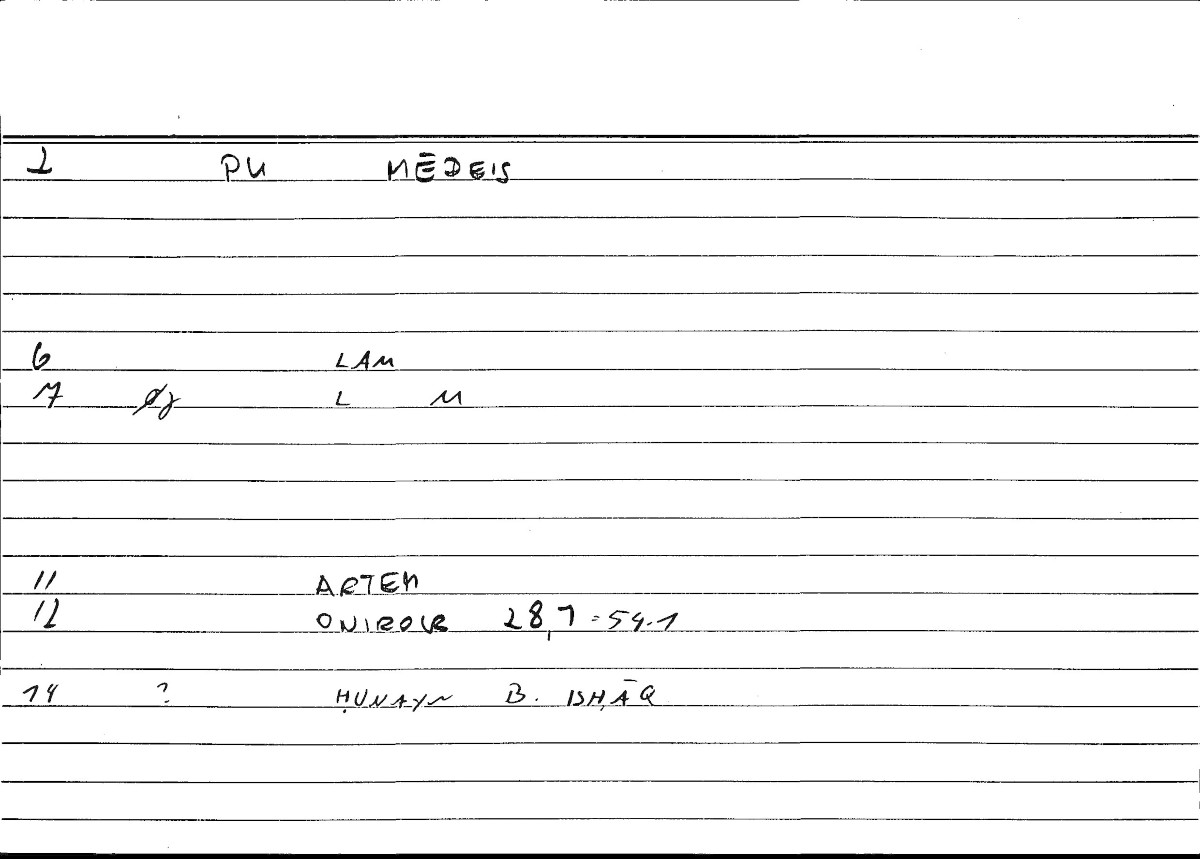 1 PU MĒDEIS
6 LAM
7 L M
11 ARTEM
12 ONIROCR 28,7=54.1
14 ? ḤUNAYN B. ISḤĀQ